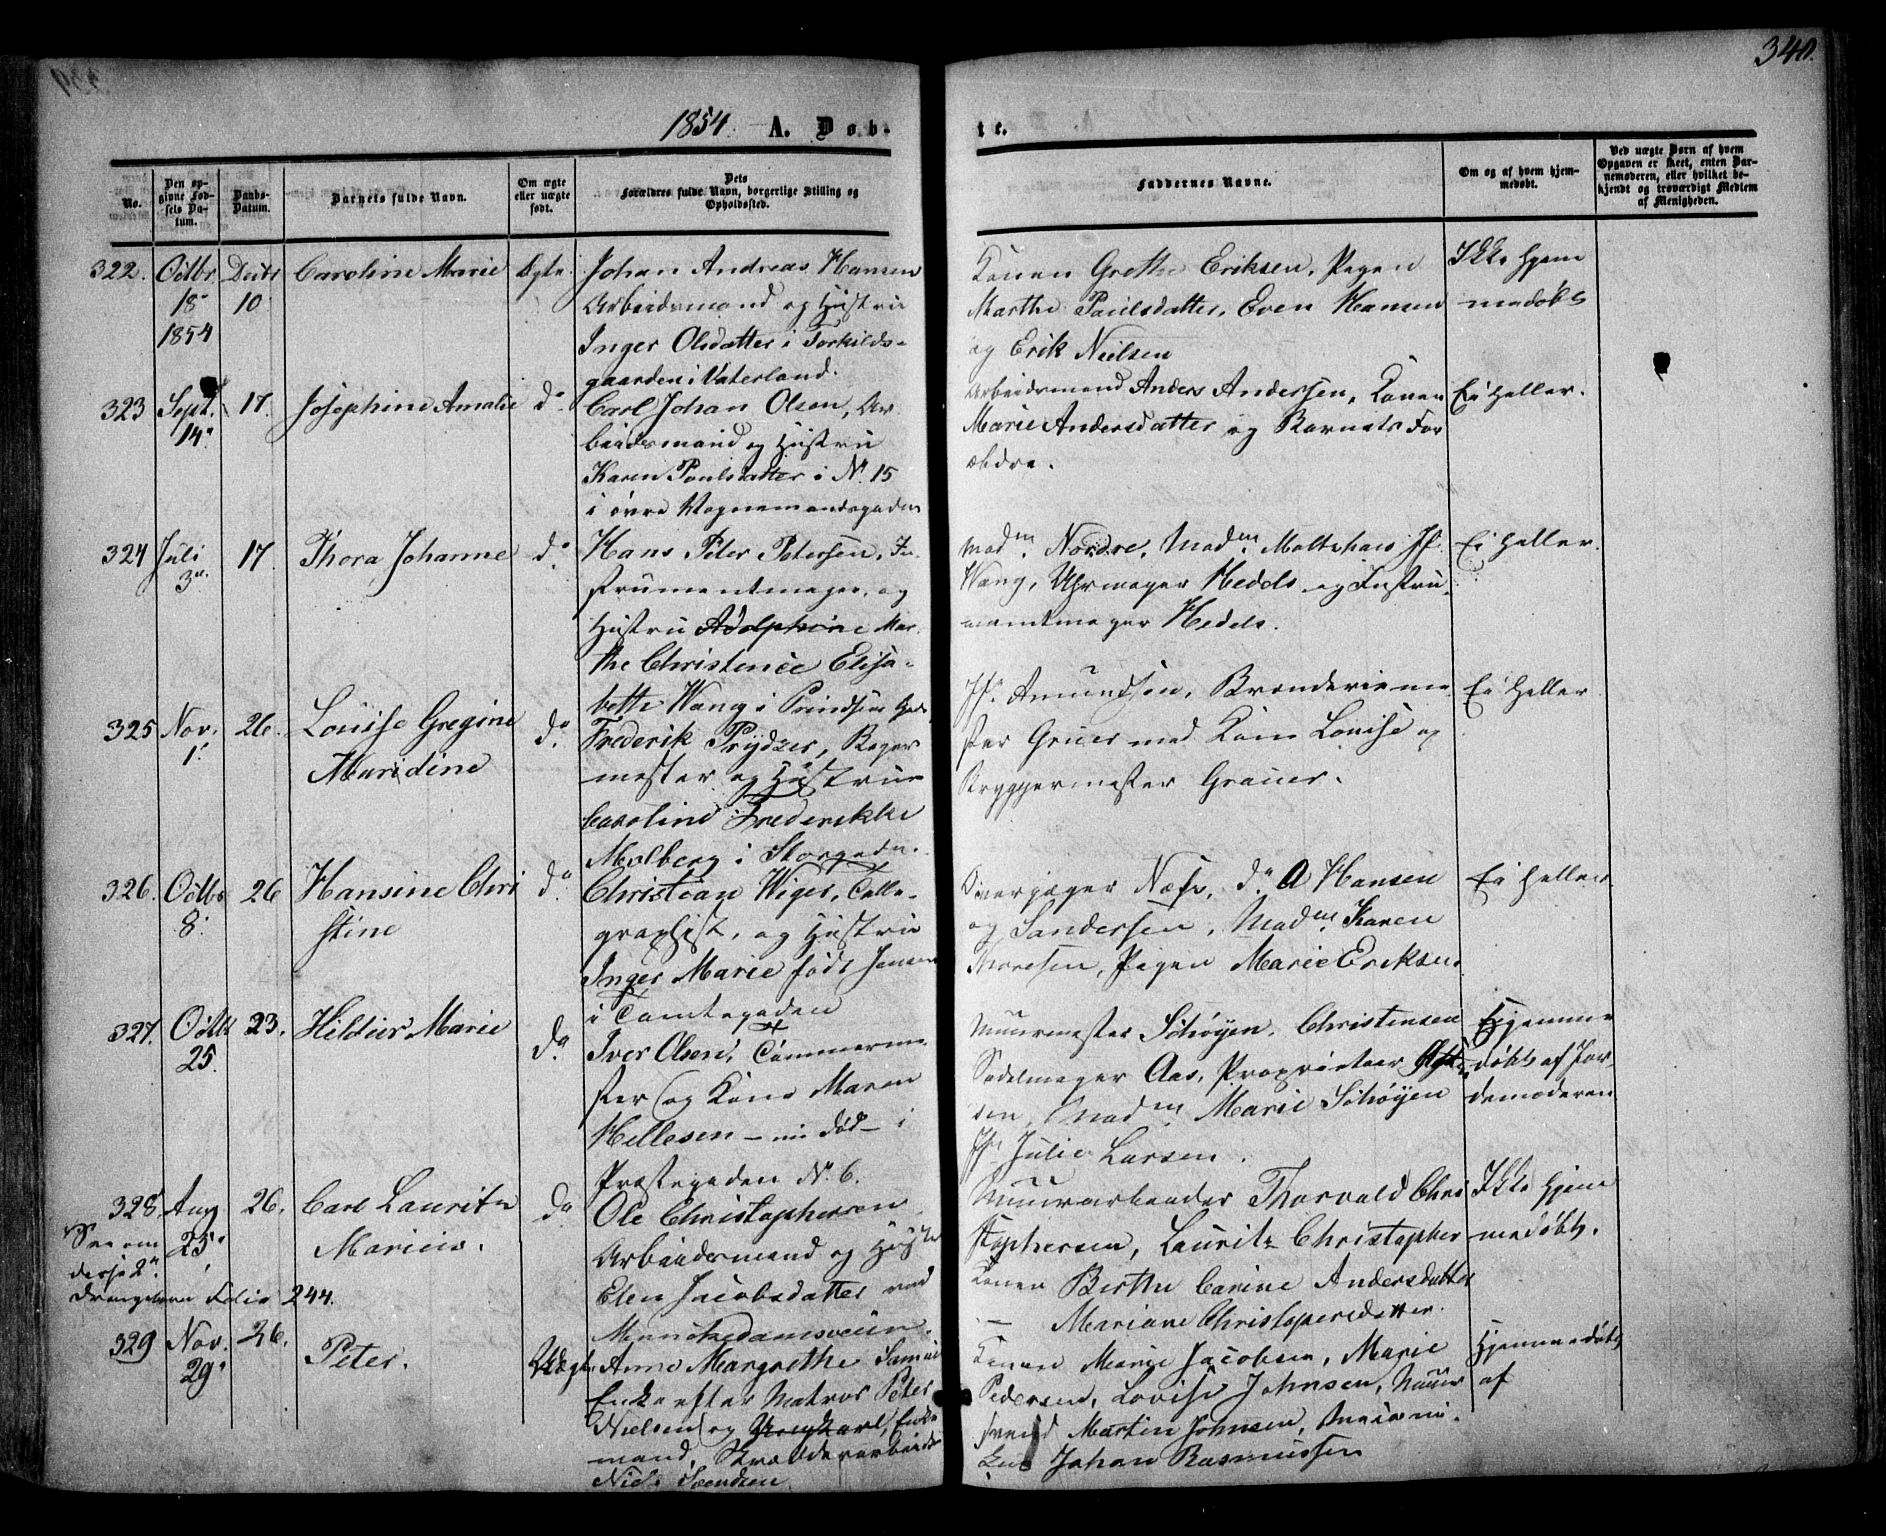 340.
1854. A. Døb-
te.
No.
Den op-
givne Fød-
sels Da-
tum.
Daabs-
Datum.
Barnets fulde Navn.
Om ægte
eller uægte
født.
Dets
Forældres fulde Navn, borgerlige Stilling og
Opholdssted.
Faddernes Navne.
Om og af hvem hjem-
medøbt.
Ved uægte Børn af hvem
Opgaven er skeet, enten Bar-
nemoderen, eller hvilket be-
kjendt og troværdigt Medlem
af Menigheden.
322. Octbr 18 1854
Decbr 10
Caroline Marie
Ægte
Johan Andreas Hansen
Arbeidsmand og Hustru
Inger Olsdatter i Torkilds-
gaarden i Vaterland.
Konen Grethe Eriksen, Pigen
Marthe Paulsdatter, Even Hansen
og Erik Nielsen
Ikke hjem
medøbt
323 Sept. 14
17.
Josephine Amalie
do
Carl Johan Olsen, Ar
beidsmand og Hustru
Karen Poulsdatter i No. 15
i øvre Vognmandsgaden
Arbeidsmand Anders Andersen, Konen
Marie Andersdatter og Barnets For
ældre.
Ei heller.
324 Juli 3
17.
Thora Johanne
do
Hans Peter Petersen, In
strumentmager, og
Hustru Adolphine Mar
the Christence Elisa-
beth Wang i Prindsens Gade
Madm. Nordre, Madm. Jf.
Wang, Uhrmager Hedels og Instru
mentmager Hedels.
Ei heller.
325 Nov. 1.
26.
Louise Gregine
Mauridine
do
Frederik Prydzer, Bager
mester og Hustru
Caroline Frederikke
Molberg i Storgaden.
Jf. Amundsen, Brænderieme
ster Gruer med Kone Louise og
Bryggermester Grauer.
Ei heller
326. Octbr 8.
26
Hansine Chri
stine
do
Christian Wiger, Calli-
graphist, og Hustru
Inger Marie født Jensen
i Tomtegaden
Overjæger Næss, do A Hansen
og Sandersen, Madm. Karen
Thoresen, Pigen Marie Eriksen.
Ei heller
327. Octbr 25.
23.
Hildur Marie
do
Iver Olsen, Tømmerme
ster og Kone Maren
Hellesen - nu død - i
Præstegaden No. 6.
Muurmester Schøyen, Christensen
Sadelmager Aas, Proprietær
den, Madm Marie Schøyen
Jfr Julie Larsen.
Hjemme
døbt af Jor
demoderen
328. Aug 25.
26.
Carl Lauritz
Marius.
do
Ole Christophersen
Arbeidsmand og Hustru
Elen Jacobsdatter ved
Munkedamsveien.
Muurarbeider Thorvald Chri
stophersen, Lauritz Christopher
Konen Berthe Carine Andersdatter
— Mariane Christophersdatter.
Ikke hjem
medøbt.
Folio 244.
329 Nov. 29
26.
Peter.
Uægte
Anne Margrethe Samuel
Enke efter Matros Peter
Nielsen og Ungkarl, Enke
mand, Skrædderarbeider
Niels Svendsen
Konen Marie Jacobsen, Marie
Pedersen, Lovise Johnsen, Muur
svend Martin Johnsen,
Johan Rasmussen
Hjemmedøbt
af